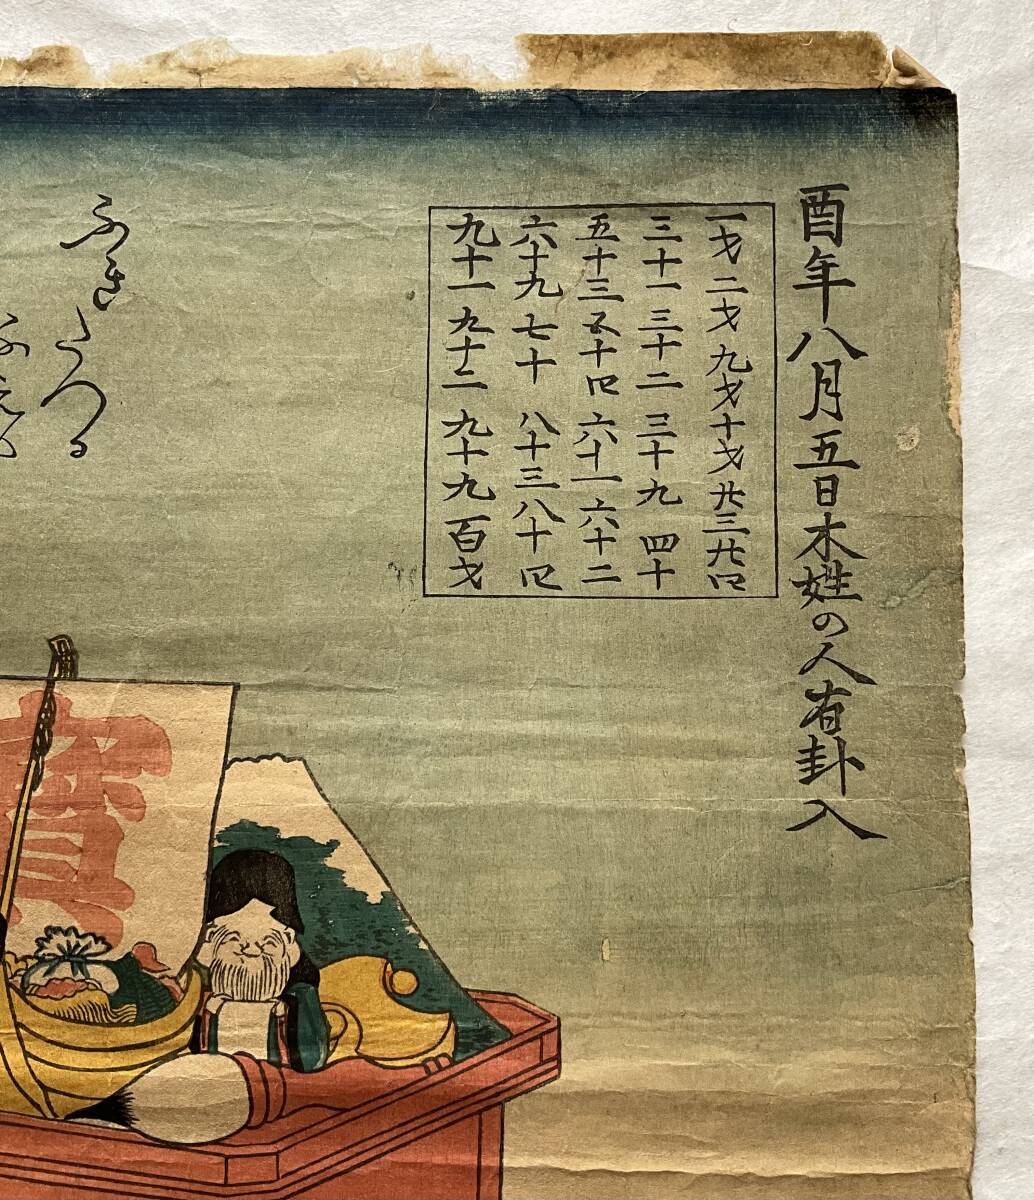 酉年八月五日木姓の人有卦入
一才二才九才十才廿三廿四
三十一三十二三十九四十
五十三五十四六十一六十二
六十九七十八十三八十四
九十一九十二九十九百才
ふきたつる
寳